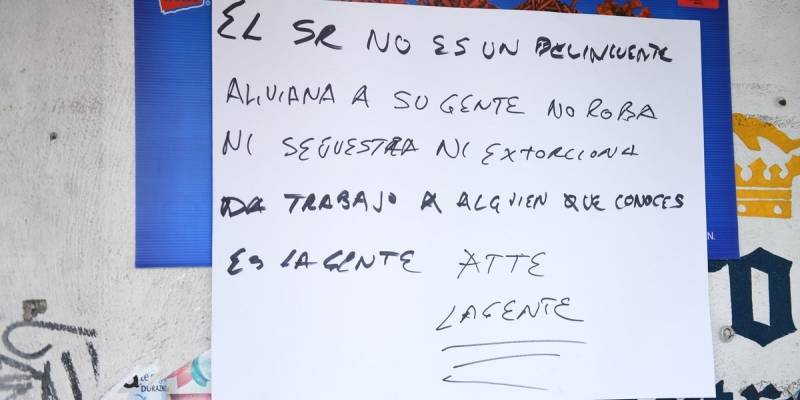 EL SR NO ES UN DELINCUENTE
ALIVIANA A SU GENTE NO ROBA
NI SECUESTRA NI EXTORCIONA
DA TRABAJO A ALGUIEN QUE CONOCES
ES LA GENTE ATTE
LA GENTE